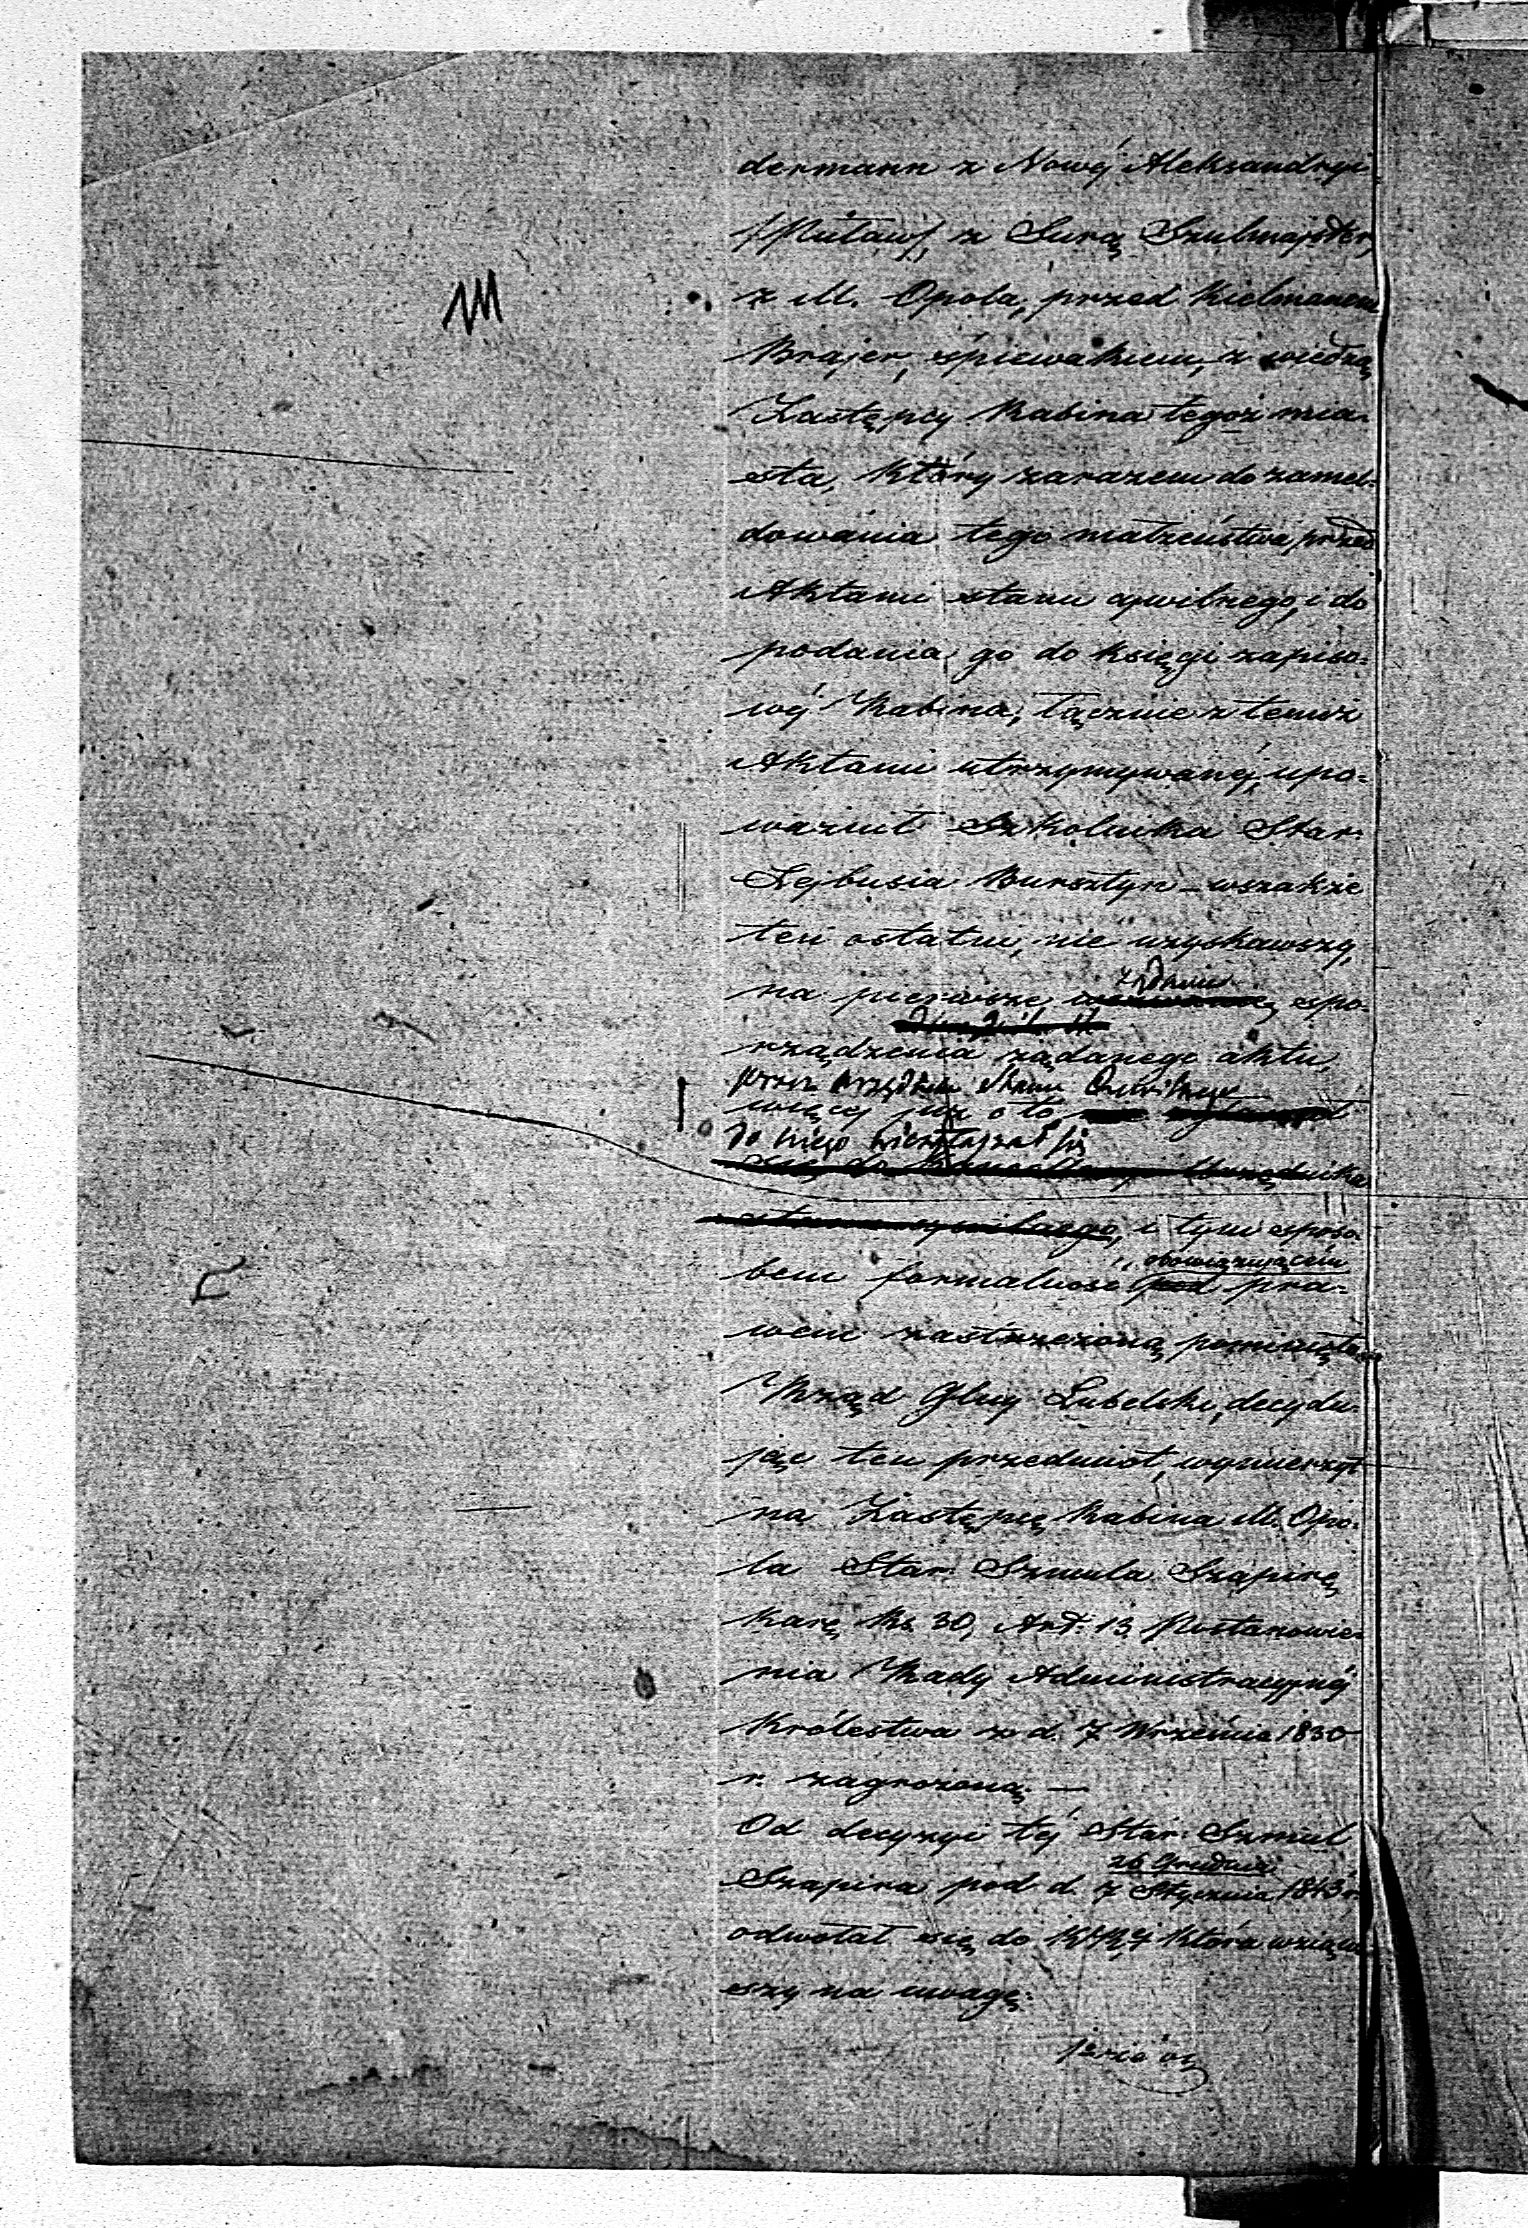 dermann z Nowéj Aleksandryi
/Puław/, z Surą Szulmajster,
z M. Opola, przed Kielmanem
Brajer, śpiewakiem, z wiedzą
Zastępcy Rabina tegoż mia-
sta, który zarazem do zamel-
dowania tego małżeństwa przed
Aktami stanu cywilnego, i do
podania go do księgi zapiso-
wéj Rabina, łącznie z temiż
Aktami utrzymywanéj, upo-
ważnił Szkolnika Star.
Lejbusia Bursztyn – wszakże
ten ostatni, nie uzyskawszy,
żądanie
na pierwsze spo-
rządzenia żądanego aktu,
przez Urzędnika Stanu Cywilnego
więcej już o to
do niego nie zgłaszał się
Urzędnika
stanu cywilnego, i tym sposo-
obowiązującém
bem formalność pod pra-
wem zastrzeżoną pominięto
Rząd Gbny Lubelski, decydu-
jąc ten przedmiot, wymierzył
na Zastępcę Rabina M. Opo-
la Star. Szmula Szapirę
karę Rs. 30, Art: 13 Postanowie-
nia Rady Administracyjnéj
Królestwa z d. 7 Września 1830
r. zagrożoną. —
Od decyzyi téj Star. Szmul
26 Grudnia
Szapira pod d. 7 Stycznia 1843 r.
odwołał się do która wziąw-
szy na uwagę: